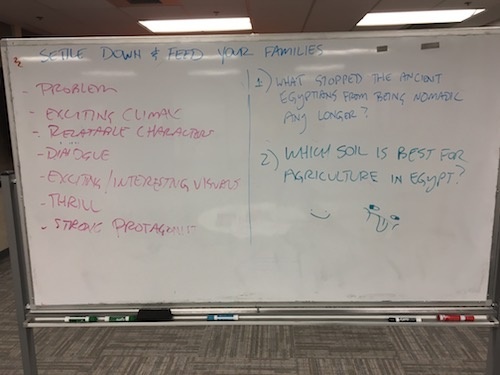 SETTLE DOWN & FEED YOUR FAMILIES
- PROBLEM
- EXCITING CLIMAX
- RELATABLE CHARACTERS
- DIALOGUE
- EXCITING/INTERESTING VISUALS
- THRILL
- STRONG PROTAGONIST
1) WHAT STOPPED THE ANCIENT
EGYPTIANS FROM BEING NOMADIC
ANY LONGER?
2) WHICH SOIL IS BEST FOR
AGRICULTURE IN EGYPT?